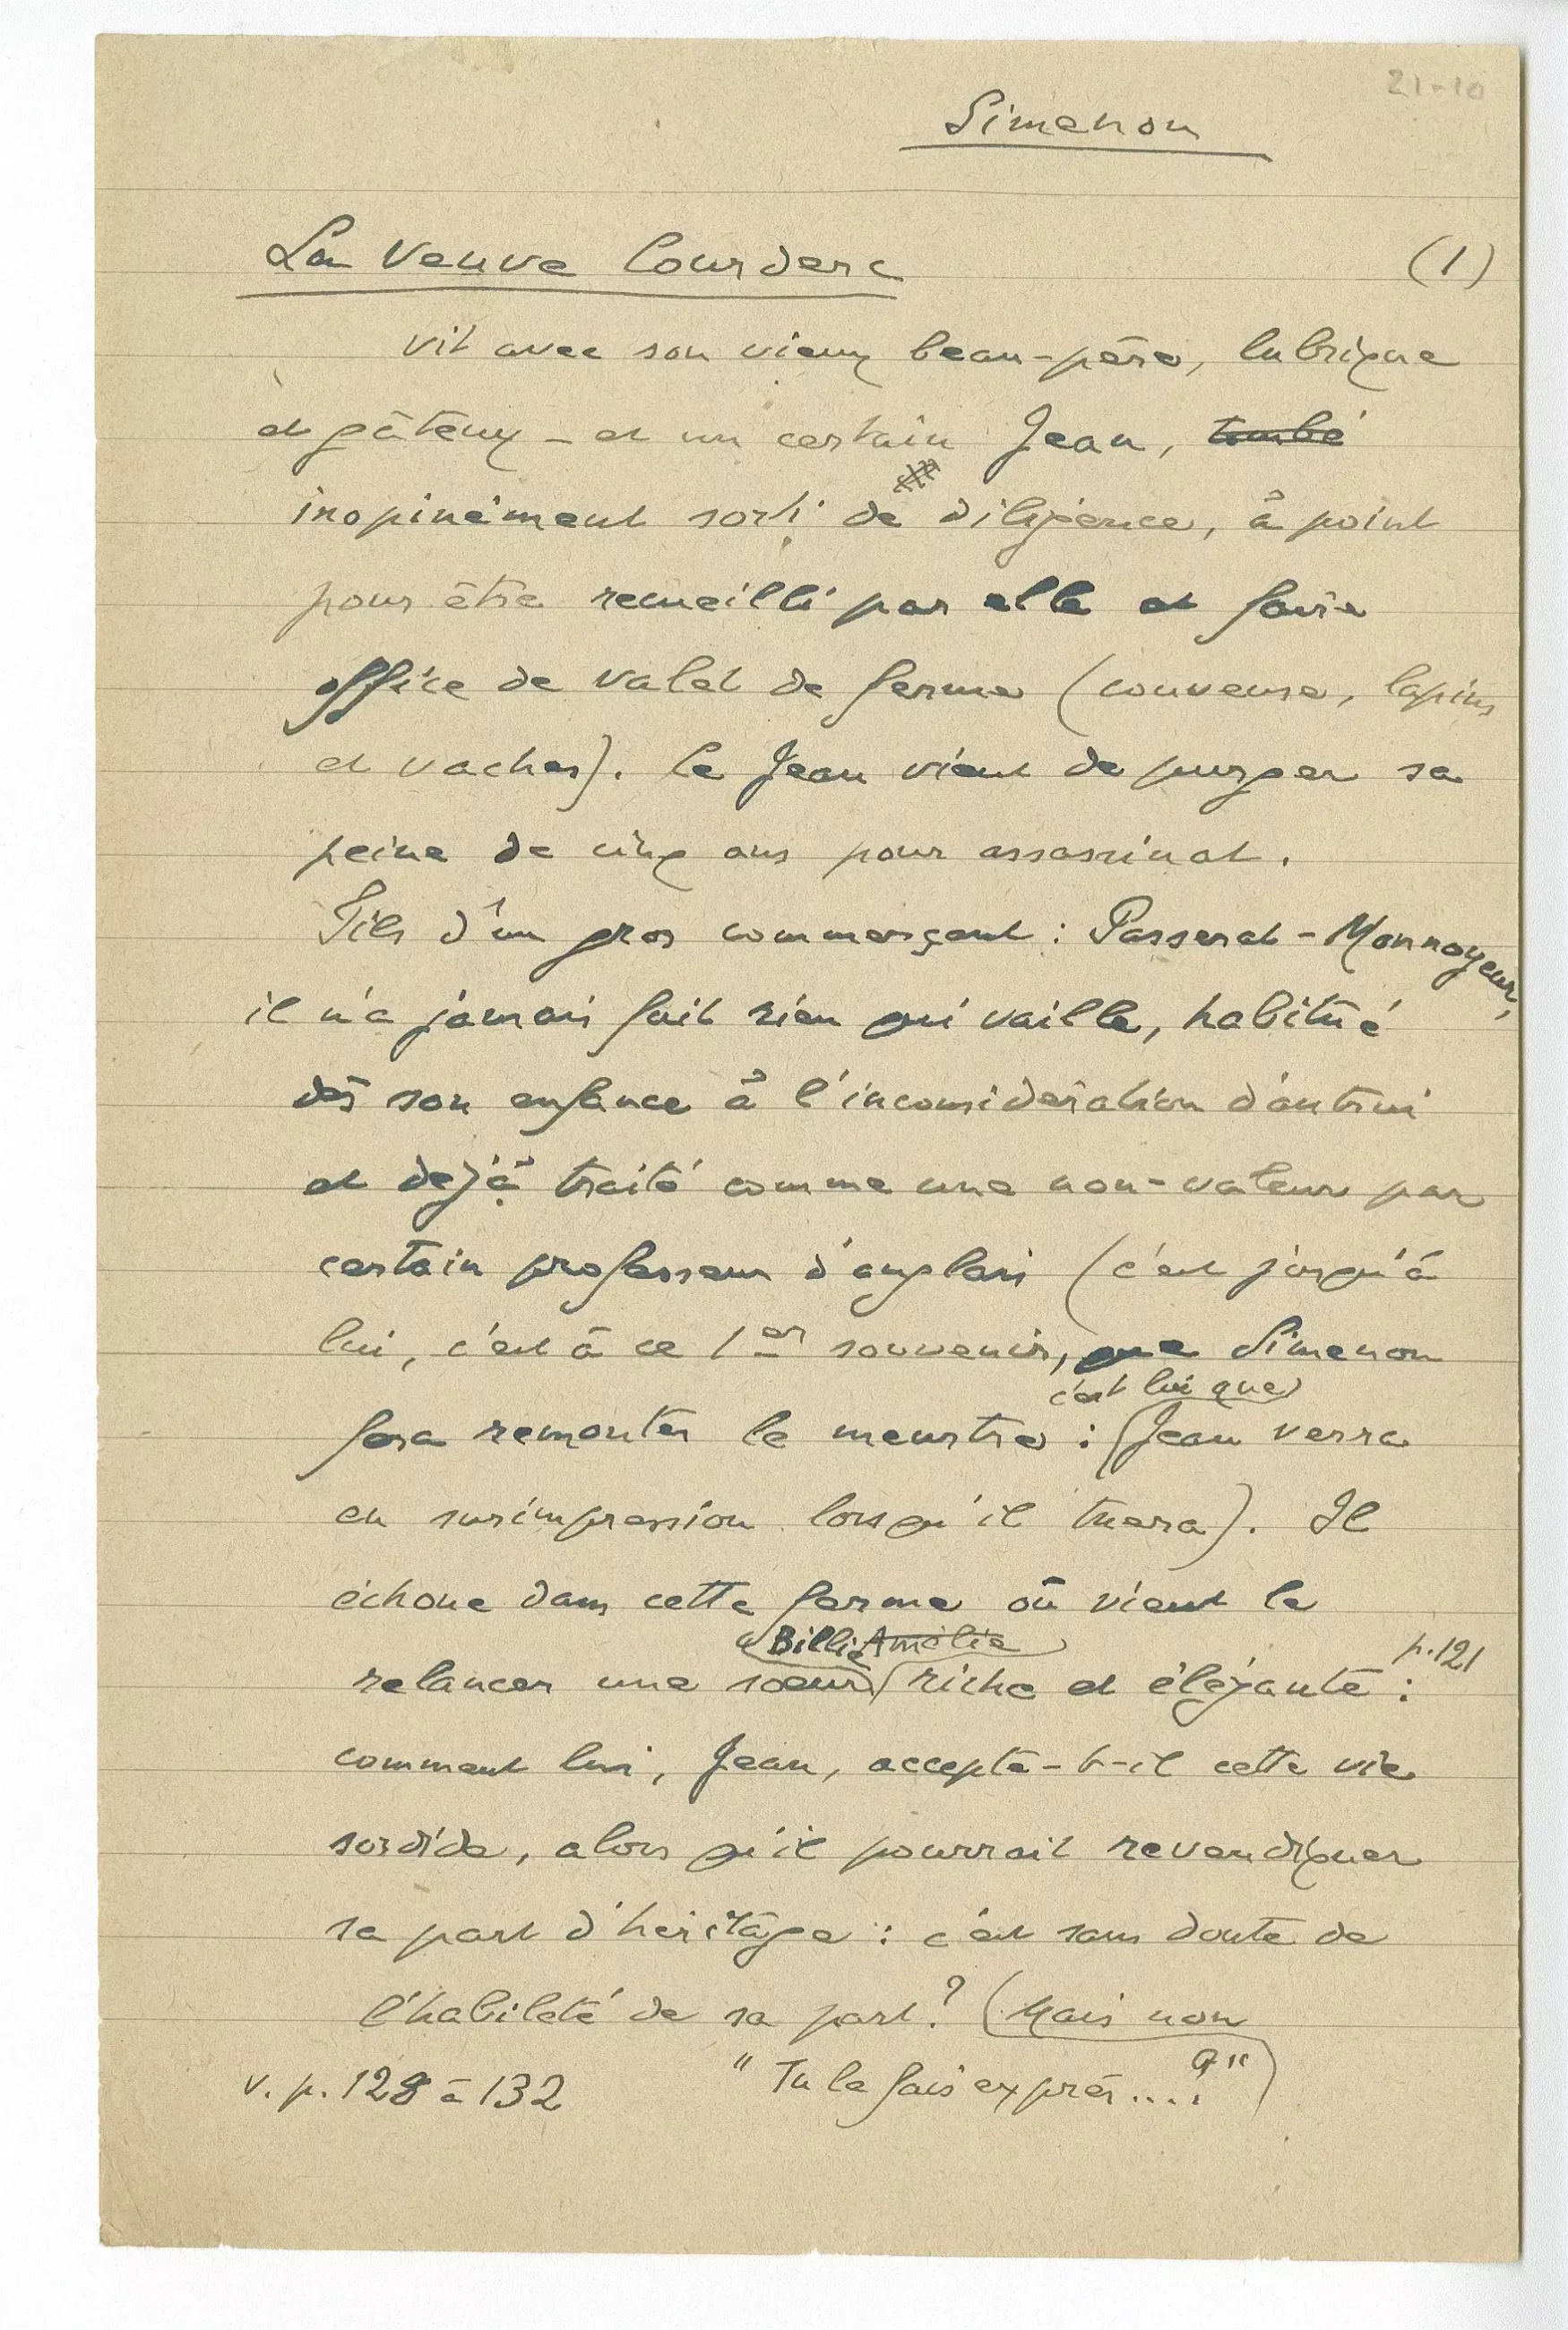 21-10
Simenon
La Veuve Courderc (1)
vit avec son vieux beau-père, lubrique
et gâteux – et un certain Jean, tombé
inopinément sorti de diligence, à point
pour être recueilli par elle et faire
office de valet de ferme (couveuse, lapins
et vaches). Le Jean vient de purger sa
peine de cinq ans pour assassinat.
Fils d'un gros commerçant : Passerat-Monnoyeur,
il n'a jamais fait rien qui vaille, habitué
dès son enfance à l'inconsidération d'autrui
et déjà traité comme une non-valeur par
certain professeur d'anglais (c'est jusqu'à
lui, c'est à ce 1er souvenir, que Simenon
c'est lui que
fera remonter le meurtre : Jean verra
en surimpression lorsqu'il tuera). Il
échoue dans cette ferme où vient le
Billie Amélie p.121
relancer une sœur riche et élégante :
comment lui, Jean, accepte-t-il cette vie
sordide, alors qu'il pourrait revendiquer
sa part d'héritage : c'est sans doute de
l'habileté de sa part? (Mais non
v. p. 128 à 132 "Tu le fais exprès....?")